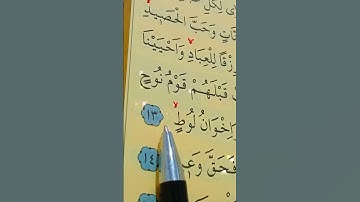 لِكُلِّ
وَحَبَّ الْحَصِيدِ
رِزْقًا لِلْعِبَادِ وَاَحْيَيْنَا
قَبْلَهُمْ قَوْمُ نُوحٍ
وَاِخْوَانُ لُوطٍ ۙ ١٣
فَحَقَّ ١٤